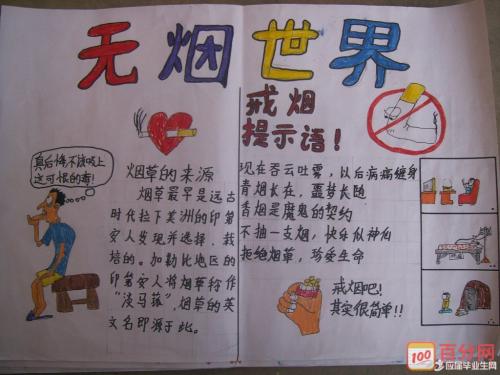 无烟世界
戒烟
提示语！
真后悔不该吸上
这可恨的毒！
烟草的来源
烟草最早是远古
时代拉丁美洲的印第
安人发现并选择、栽
培的。加勒比地区的
印第安人将烟草称作
“淡马菰”，烟草的英
文名即源于此。
现在吞云吐雾，以后病痛缠身
青烟长在，噩梦长随
香烟是魔鬼的契约
不抽一支烟，快乐似神仙
拒绝烟草，珍爱生命
戒烟吧！
其实很简单！！
100
百分网
应届毕业生网